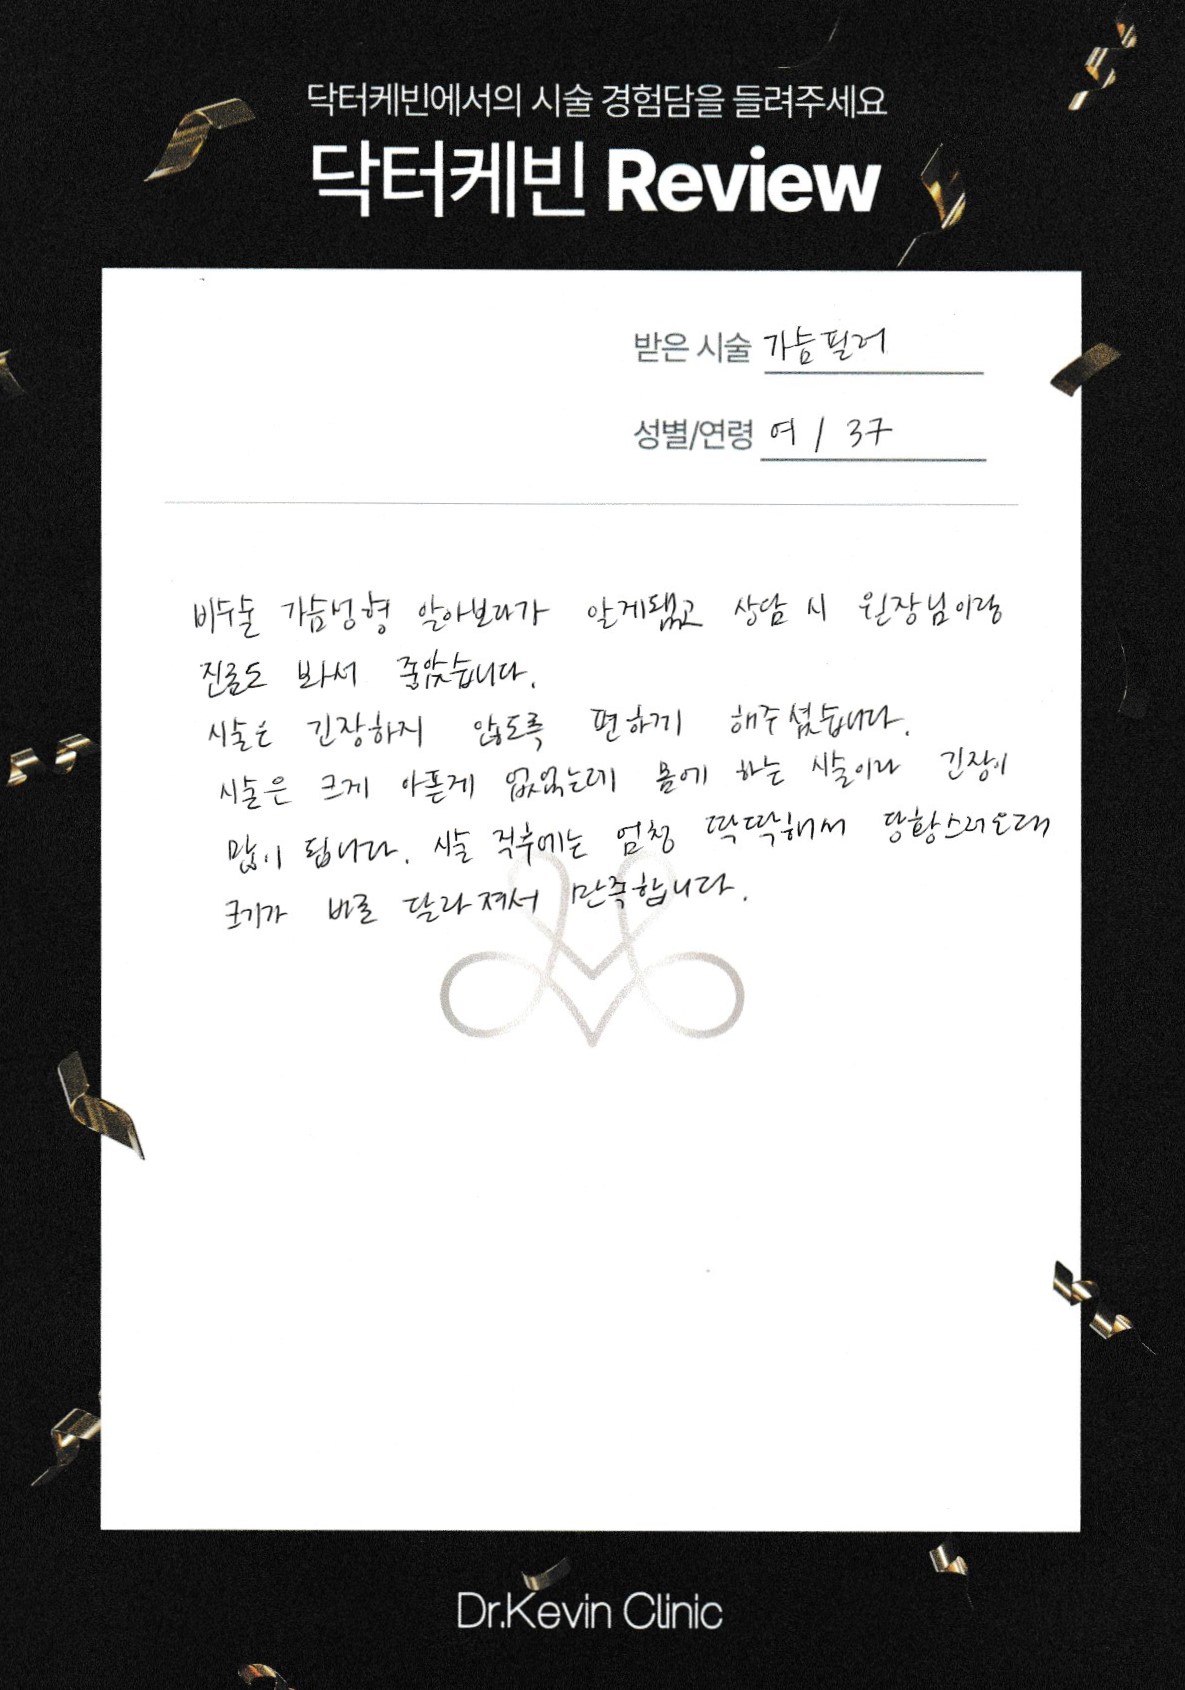 닥터케빈에서의 시술 경험담을 들려주세요
닥터케빈 Review
받은 시술 가슴필러
성별/연령 여 / 37
비수술 가슴성형 알아보다가 알게됐고 상담 시 원장님이랑
진료도 봐서 좋았습니다.
시술은 긴장하지 않도록 편하게 해주셨습니다.
시술은 크게 아픈게 없었는데 몸에 하는 시술이라 긴장이
많이 됩니다. 시술 직후에는 엄청 딱딱해서
크기가 바로 달라져서 만족합니다.
Dr.Kevin Clinic